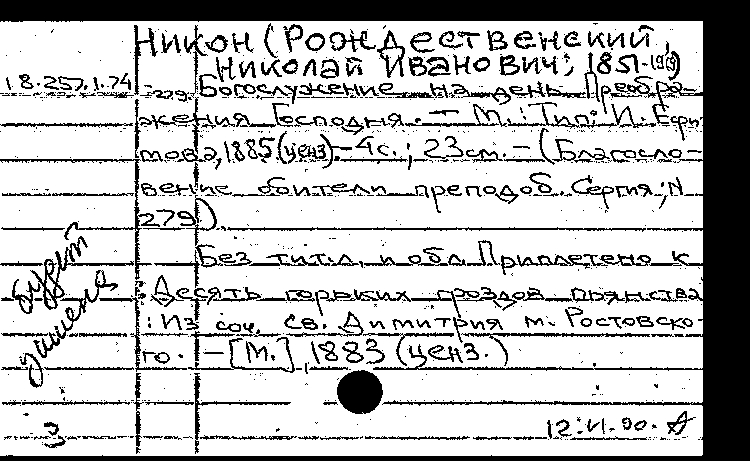 Никон (Рождественский,
Николай Иванович; 1851-1919)
18.257.1.74
-279. Богослужение на день Преобра-
жения Господня. — М.: Тип. И. Ефи-
мова, 1885 (ценз). - 4с.; 23см. - (Благосло-
вение обители преподоб. Сергия; N
279).
Без тит.л. и обл. Приплетено к
: Десять горьких гроздов пьянства
: Из соч. св. Димитрия м. Ростовско-
го. - [М.], 1883 (ценз.)
будет
3
12.VI.90.